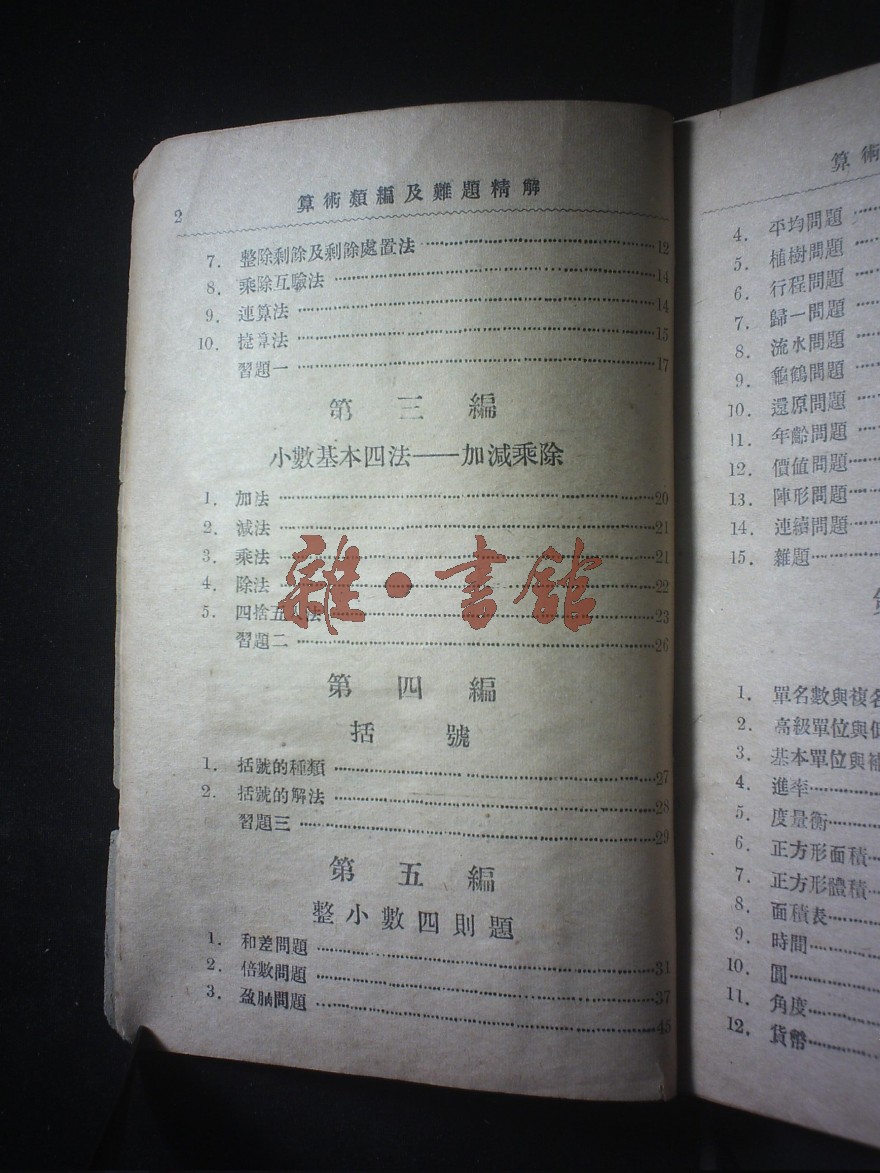 2 算術類編及難題精解
7. 整除剩餘及剩餘處置法 12
8. 乘除互驗法 14
9. 連算法 14
10. 捷算法 15
習題一 17
第三編
小數基本四法——加減乘除
1. 加法 20
2. 減法 21
3. 乘法 21
4. 除法 22
5. 四捨五入法 23
習題二 26
雜·書館
第四編
括號
1. 括號的種類 27
2. 括號的解法 28
習題三 29
第五編
整小數四則題
1. 和差問題 31
2. 倍數問題 37
3. 盈朒問題 45
算術
4. 平均問題
5. 植樹問題
6. 行程問題
7. 歸一問題
8. 流水問題
9. 龜鶴問題
10. 還原問題
11. 年齡問題
12. 價值問題
13. 陣形問題
14. 連續問題
15. 雜題
1. 單名數與複名
2. 高級單位與低
3. 基本單位與補
4. 進率
5. 度量衡
6. 正方形面積
7. 正方形體積
8. 面積表
9. 時間
10. 圓
11. 角度
12. 貨幣